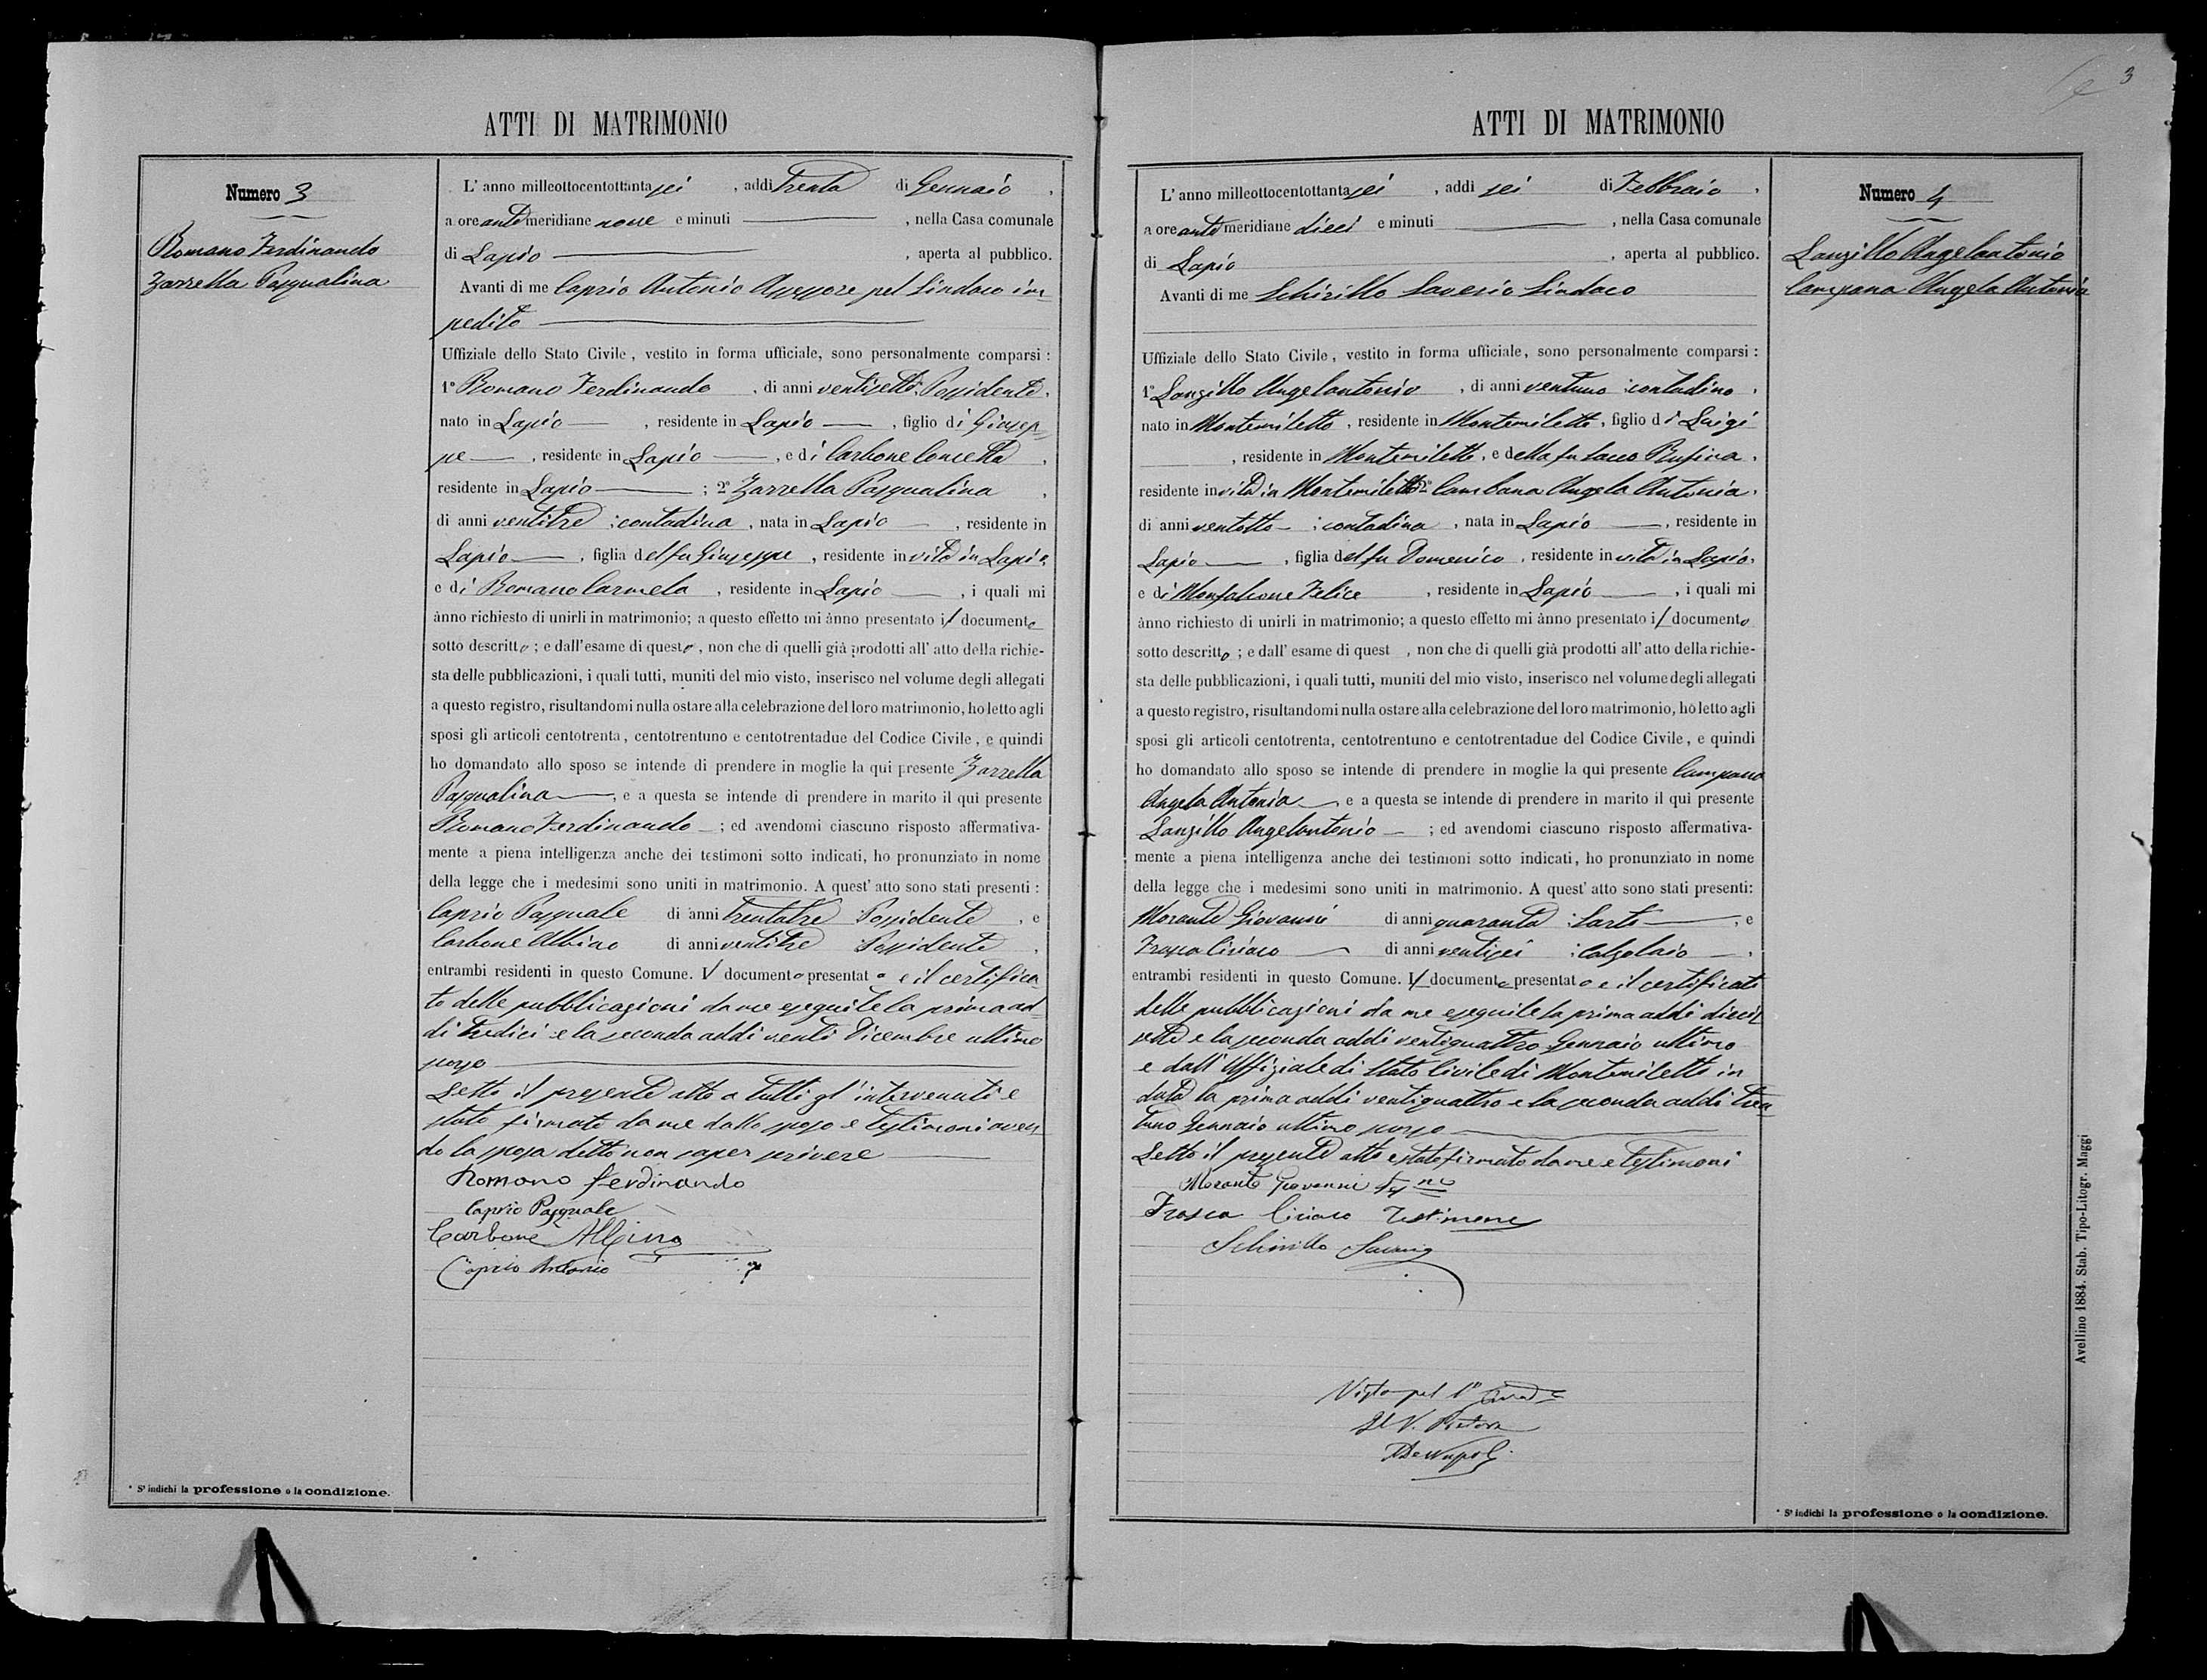 ATTI DI MATRIMONIO
Numero 3
Romano Ferdinando
Zarrella Pasqualina
L' anno milleottocentottantasei , addì trenta di Gennaio ,
a ore antimeridiane nove e minuti , nella Casa comunale
di Lapio , aperta al pubblico.
Avanti di me Caprio Antonio Assessore pel Sindaco im
pedito
Uffiziale dello Stato Civile, vestito in forma ufficiale, sono personalmente comparsi :
1° Romano Ferdinando , di anni ventisette Possidente ,
nato in Lapio , residente in Lapio , figlio di Giusep
pe , residente in Lapio , e di Carbone Concetta ,
residente in Lapio ; 2° Zarrella Pasqualina ,
di anni ventitre : contadina , nata in Lapio , residente in
Lapio , figlia del fu Giuseppe , residente in vita in Lapio,
e di Romano Carmela , residente in Lapio , i quali mi
ànno richiesto di unirli in matrimonio; a questo effetto mi ànno presentato il documento
sotto descritto ; e dall'esame di questo , non che di quelli già prodotti all' atto della richie-
sta delle pubblicazioni, i quali tutti, muniti del mio visto, inserisco nel volume degli allegati
a questo registro, risultandomi nulla ostare alla celebrazione del loro matrimonio, ho letto agli
sposi gli articoli centotrenta, centotrentuno e centotrentadue del Codice Civile, e quindi
ho domandato allo sposo se intende di prendere in moglie la qui presente Zarrella
Pasqualina , e a questa se intende di prendere in marito il qui presente
Romano Ferdinando ; ed avendomi ciascuno risposto affermativa-
mente a piena intelligenza anche dei testimoni sotto indicati, ho pronunziato in nome
della legge che i medesimi sono uniti in matrimonio. A quest' atto sono stati presenti :
Caprio Pasquale di anni trentatre Possidente , e
Carbone Albino di anni ventitre Possidente ,
entrambi residenti in questo Comune. Il documento presentato e il certifica
to delle pubblicazioni da me eseguite la prima ad
di tredici e la seconda addi venti Dicembre ultimo
scorso
Letto il presente atto a tutti gl' intervenuti e
stato firmato da me dallo sposo e testimoni aven
do la sposa detto non saper scrivere
Romano Ferdinando
Caprio Pasquale
Carbone Albino
Caprio Antonio
* S' indichi la professione o la condizione.
3
ATTI DI MATRIMONIO
Numero 4
Lanzillo Angelantonio
Campana Angela Antonia
L' anno milleottocentottantasei , addì sei di Febbraio ,
a ore antimeridiane dieci e minuti , nella Casa comunale
di Lapio , aperta al pubblico.
Avanti di me Schirillo Saverio Sindaco
Uffiziale dello Stato Civile, vestito in forma ufficiale, sono personalmente comparsi :
1° Lanzillo Angelantonio , di anni ventuno : contadino ,
nato in Montemiletto , residente in Montemiletto , figlio di Luigi
, residente in Montemiletto , e della fu Sacco Rufina ,
residente in vita in Montemiletto 2° Campana Angela Antonia ,
di anni ventotto : contadina , nata in Lapio , residente in
Lapio , figlia del fu Domenico , residente in vita in Lapio,
e di Monfalcone Felice , residente in Lapio , i quali mi
ànno richiesto di unirli in matrimonio; a questo effetto mi ànno presentato il documento
sotto descritto ; e dall' esame di quest , non che di quelli già prodotti all' atto della richie-
sta delle pubblicazioni, i quali tutti, muniti del mio visto, inserisco nel volume degli allegati
a questo registro, risultandomi nulla ostare alla celebrazione del loro matrimonio, ho letto agli
sposi gli articoli centotrenta, centotrentuno e centotrentadue del Codice Civile, e quindi
ho domandato allo sposo se intende di prendere in moglie la qui presente Campana
Angela Antonia , e a questa se intende di prendere in marito il qui presente
Lanzillo Angelantonio ; ed avendomi ciascuno risposto affermativa-
mente a piena intelligenza anche dei testimoni sotto indicati, ho pronunziato in nome
della legge che i medesimi sono uniti in matrimonio. A quest' atto sono stati presenti:
Morante Giovanni di anni quaranta : Sarto , e
Frasca Ciriaco di anni ventisei : Calzolaio ,
entrambi residenti in questo Comune. Il documento presentato e il certificati
delle pubblicazioni da me eseguite la prima addi dicias
sette e la seconda addi ventiquattro Gennaio ultimo
e dall' Uffiziale di Stato Civile di Montemiletto in
data la prima addi ventiquattro e la seconda addi tren
tuno Gennaio ultimo scorso
Letto il presente atto e stato firmato da me e testimoni
Morante Giovanni
Frasca Ciriaco Testimone
Schirillo Saverio
Visto pel
Il V. Pretore
* S' indichi la professione o la condizione.
Avellino 1884. Stab. Tipo-Litogr. Maggi